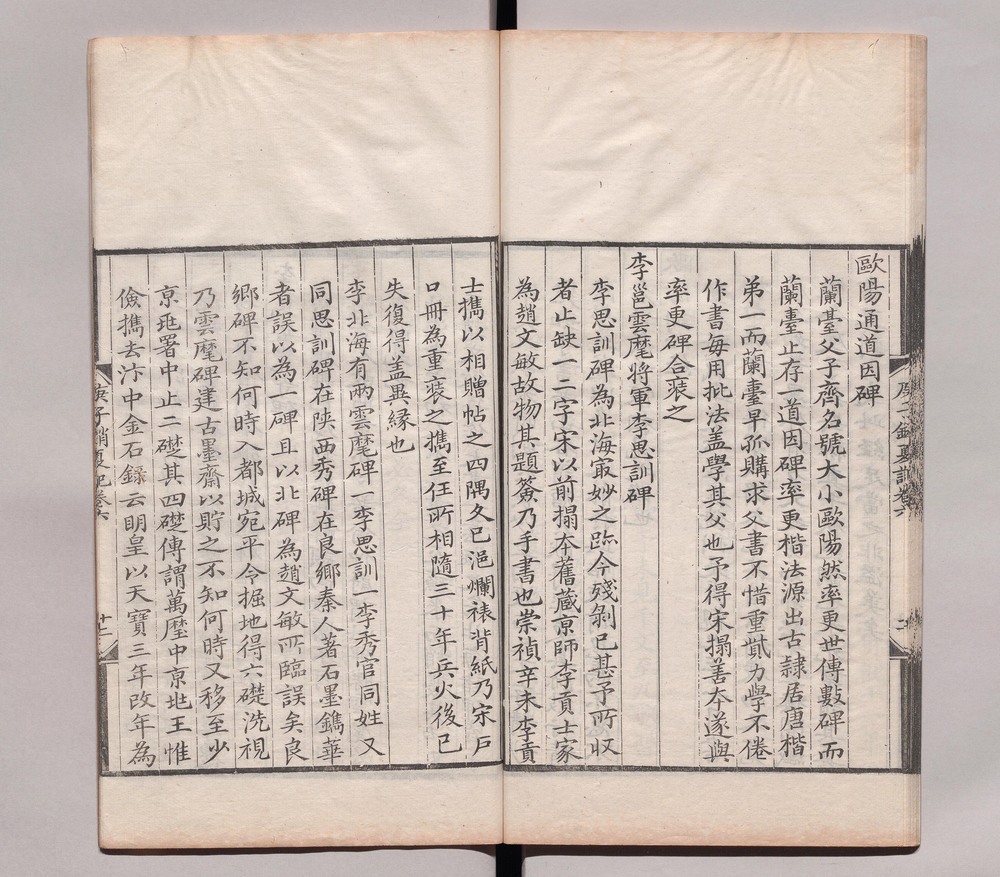 歐陽通道因碑
蘭臺父子齊名號大小歐陽然率更世傳數碑而
蘭臺止存一道因碑率更楷法源出古隸居唐楷
弟一而蘭臺早孤購求父書不惜重貲力學不倦
作書每用批法盖學其父也予得宋搨善夲遂與
率更碑合裝之
李邕雲麾將軍李思訓碑
李思訓碑為北海㝡妙之跡今殘剝已甚予所収
者止缺一二字宋以前搨夲舊蔵京師李貢士家
為趙文敏故物其題籤乃手書也崇禎辛未李貢
士攜以相贈帖之四隅久已浥爛裱背紙乃宋戶
口冊為重裝之攜至任所相隨三十年兵火後已
失復得盖異緣也
李北海有兩雲麾碑一李思訓一李秀官同姓又
同思訓碑在陜西秀碑在良鄉秦人著石墨鐫華
者誤以為一碑且以北碑為趙文敏所臨誤矣良
鄉碑不知何時入都城宛平令掘地得六礎洗視
乃雲麾碑建古墨齋以貯之不知何時又移至少
京兆署中止二礎其四礎傳謂萬曆中京兆王惟
儉攜去汴中金石録云明皇以天寶三年改年為
庚子銷夏記卷六
十二